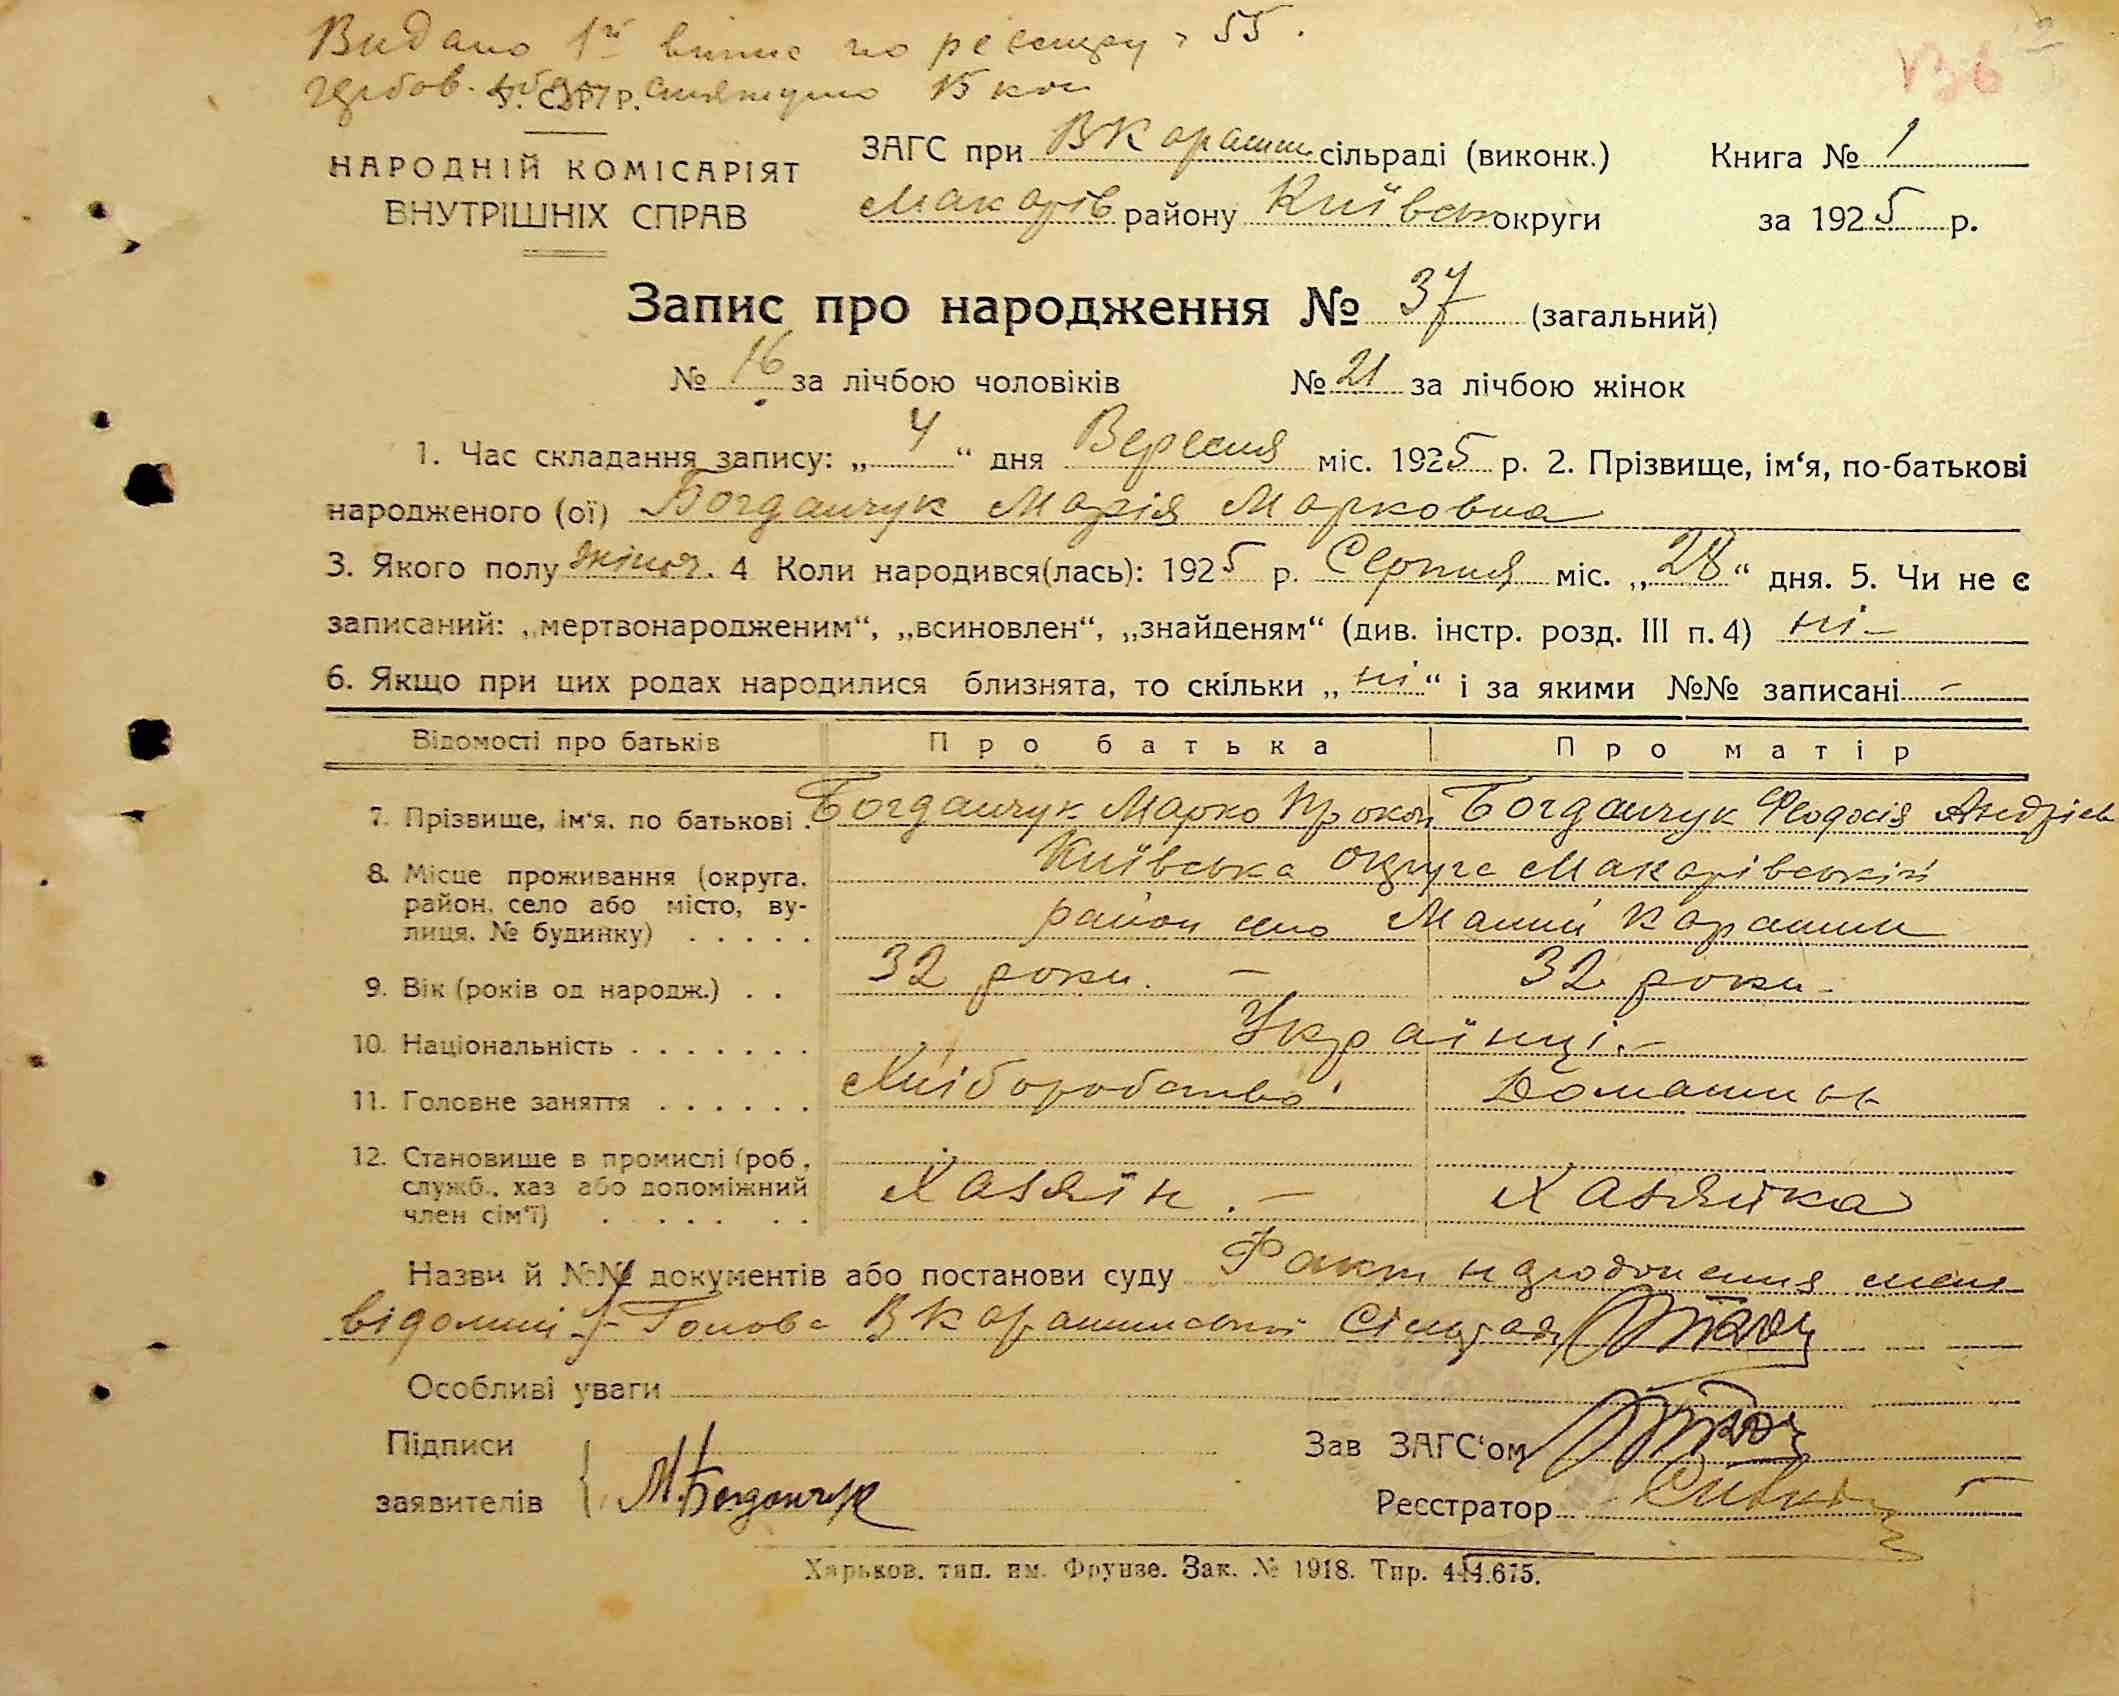 Видано 1й випис по реєстру 55.
гербов. збору стягнуто 15 коп
У. С. Р. Р.
НАРОДНІЙ КОМІСАРІЯТ
ВНУТРІШНІХ СПРАВ
ЗАГС при ВКарашин. сільраді (виконк.)
Макарів району Київськ округи
Книга № 1
за 1925 р.
136
Запис про народження № 37 (загальний)
№ 16 за лічбою чоловіків № 21 за лічбою жінок
1. Час складання запису: „4“ дня Вересня міс. 1925 р. 2. Прізвище, ім‘я, по-батькові
народженого (ої) Богданчук Марія Марковна
3. Якого полу жіноч. 4 Коли народився(лась): 1925 р. Серпня міс. „28“ дня. 5. Чи не є
записаний: „мертвонародженим“, „всиновлен“, „знайденям“ (див. інстр. розд. III п. 4) ні –
6. Якщо при цих родах народилися близнята, то скільки „ні“ і за якими №№ записані –
Відомості про батьків Про батька Про матір
7. Прізвище, ім‘я, по батькові . Богданчук Марко Прокоп Богданчук Феодосія Андріев
8. Місце проживання (округа, Київська округа Макарівський
район, село або місто, ву-
лиця, № будинку) . . . . . район село Малий Карашин
9. Вік (років од народж.) . . 32 роки. – 32 роки –
10. Національність . . . . . . . Українці. –
11. Головне заняття . . . . . . Хліборобство Домашнь
12. Становище в промислі (роб.,
служб., хаз або допоміжний Хазяїн. – Хазяйка
член сім‘ї) . . . . . . .
Назви й №№ документів або постанови суду Факт народження мені
відомий Голова ВКарашинської Сільради
Особливі уваги
Підписи Зав ЗАГС‘ом
заявителів М. Богданчук Реєстратор
Харьков. тип. им. Фрунзе. Зак. № 1918. Тир. 444.675.